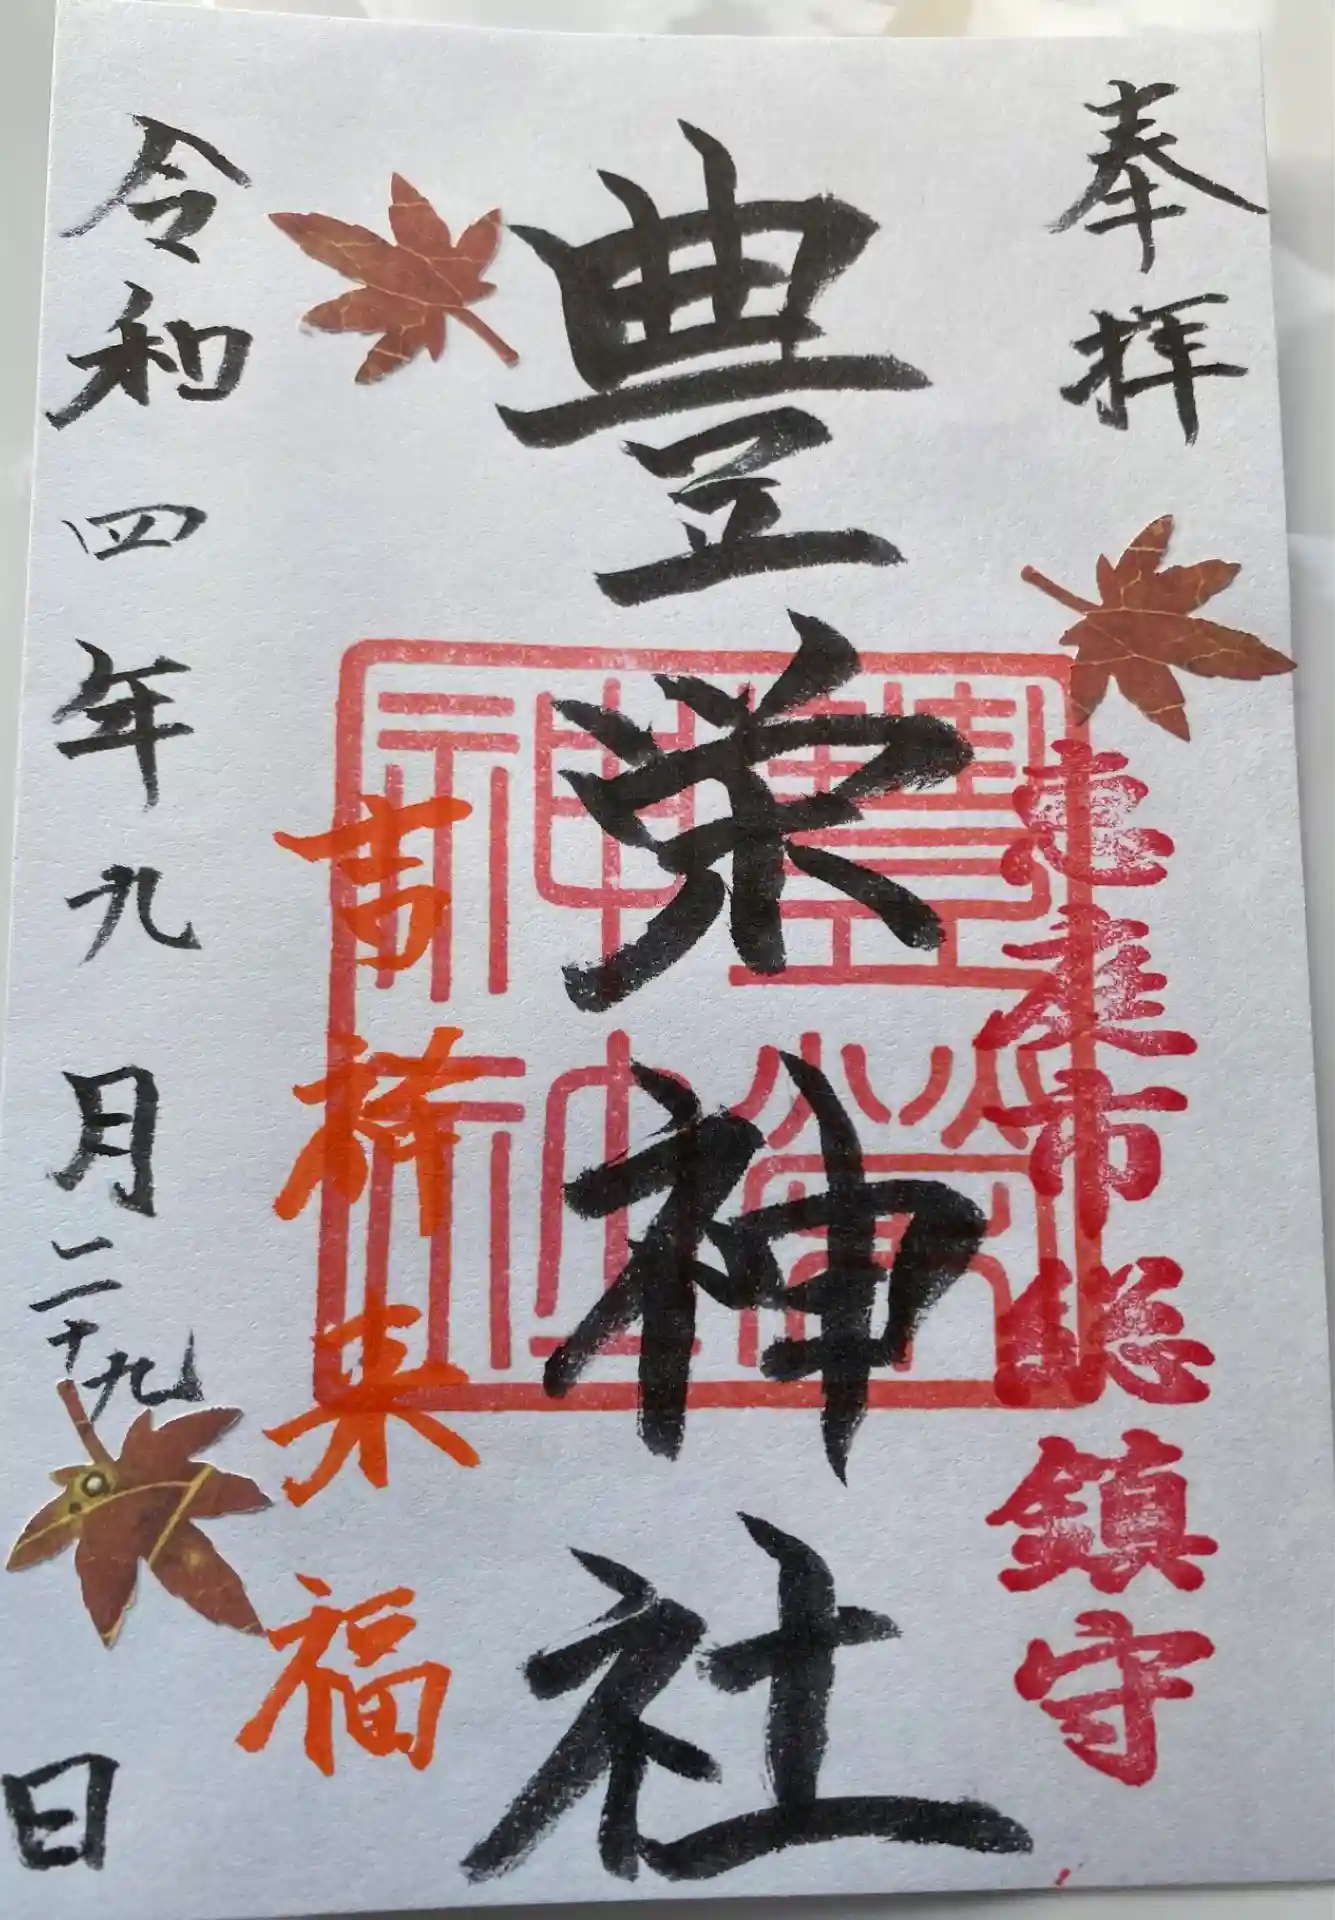 奉拝
恵庭市総鎮守
豊栄神社
豐榮
神社
吉祥来福
令和四年九月二十九日